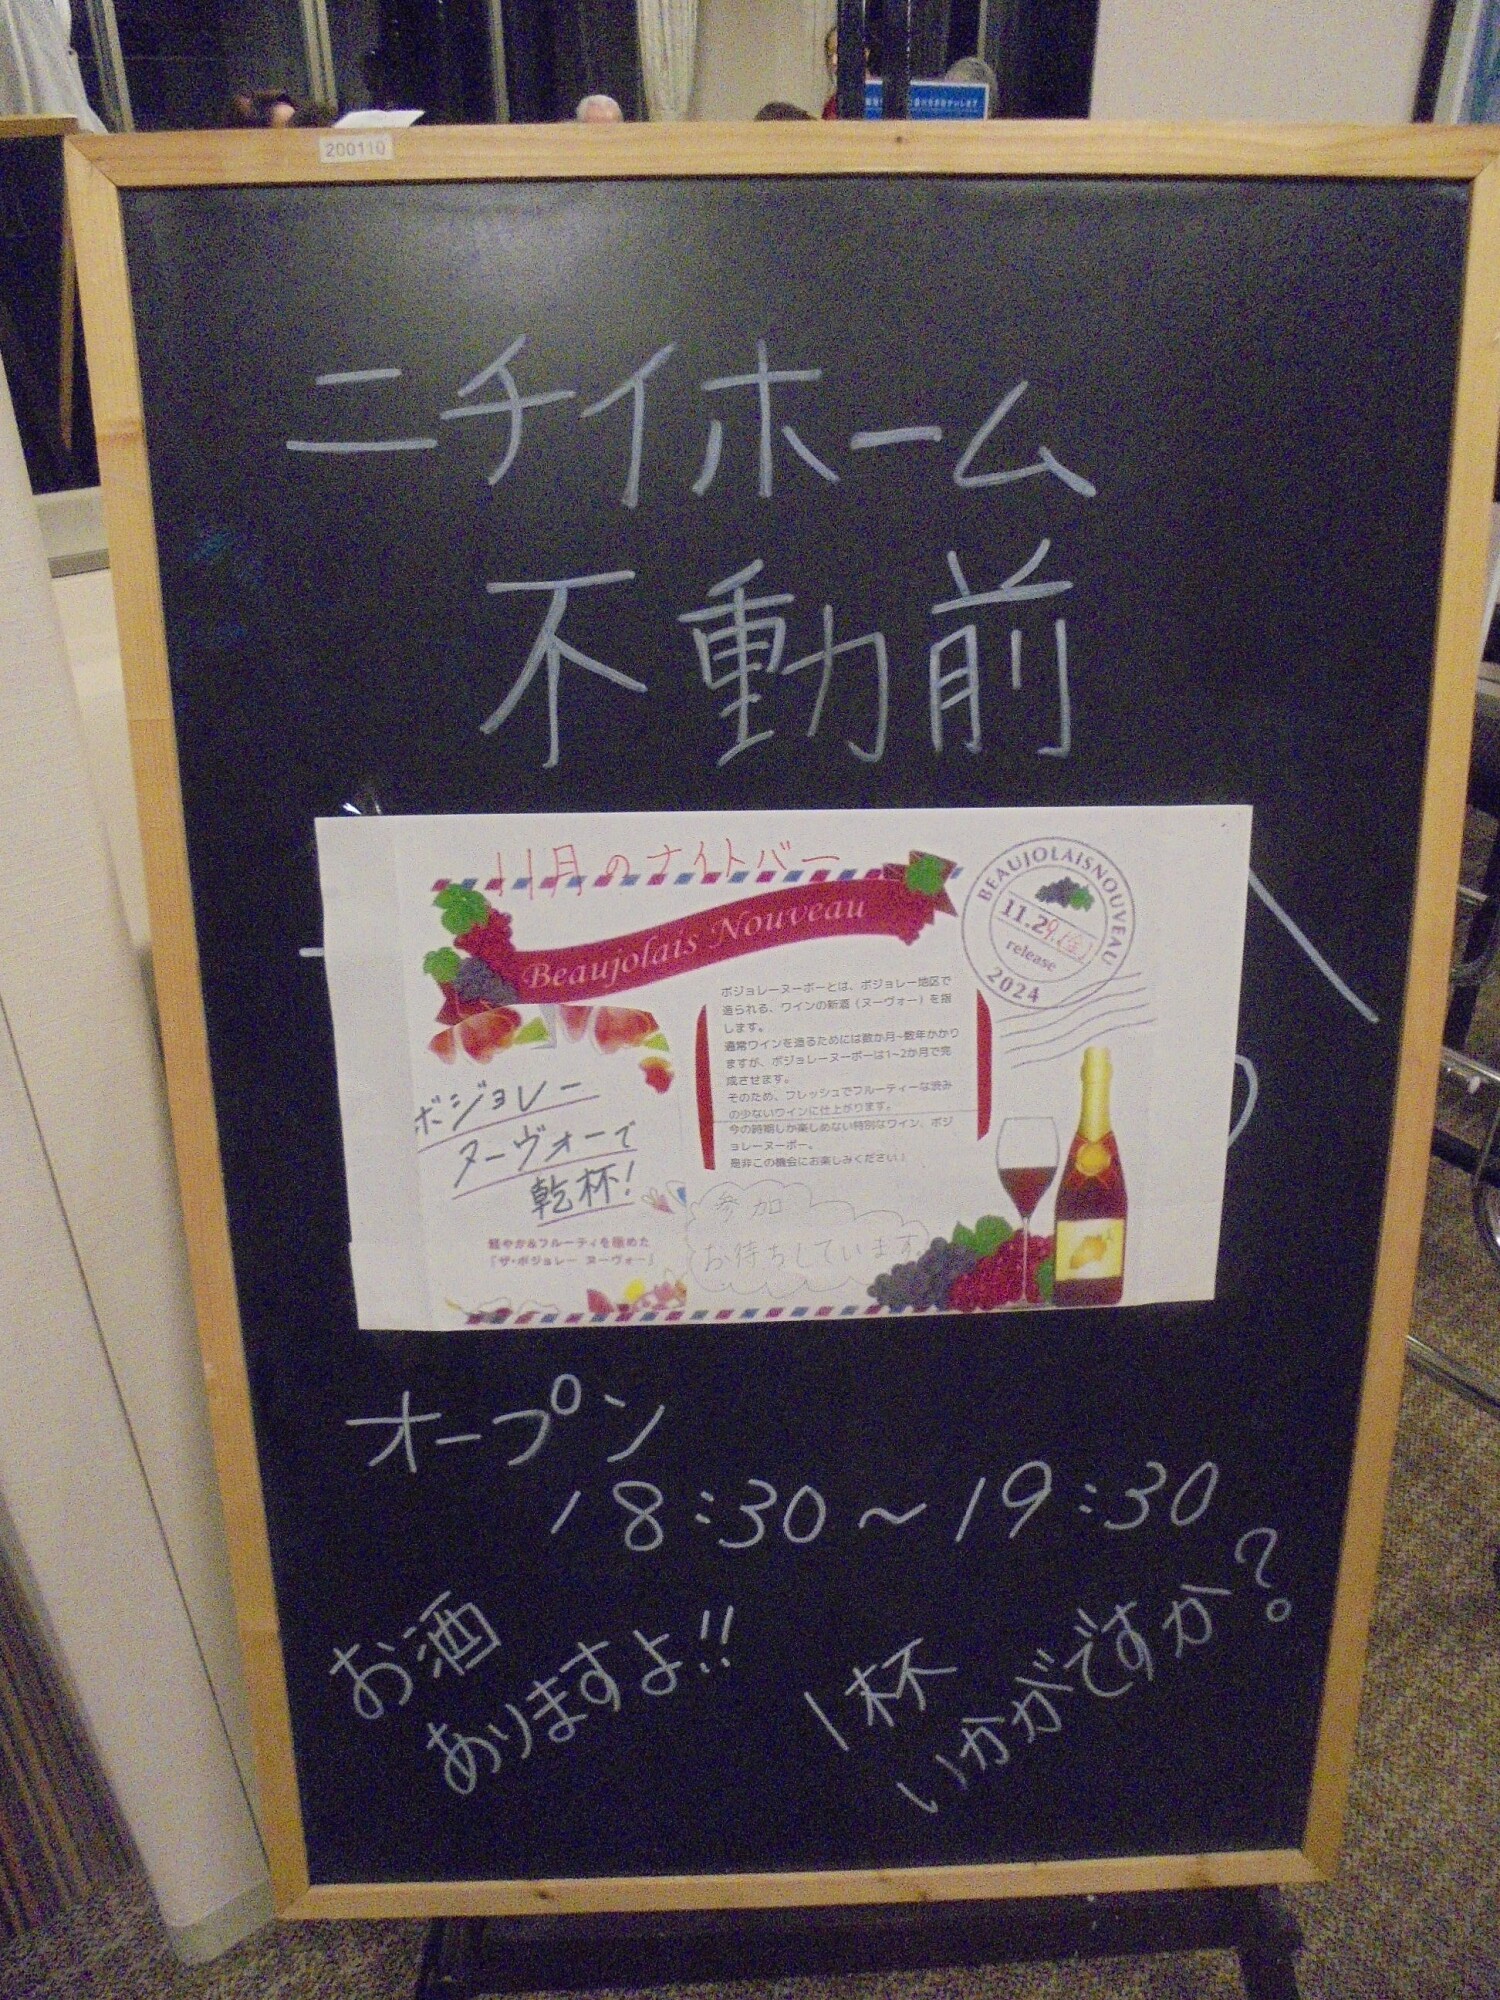 200110
ニチイホーム
不動前
11月のナイトバー
Beaujolais Nouveau
BEAUJOLAISNOUVEAU
11.29.(金)
release
2024
ボジョレーヌーボーとは、ボジョレー地区で
造られる、ワインの新酒（ヌーヴォー）を指
します。
通常ワインを造るためには数か月~数年かかり
ますが、ボジョレーヌーボーは1~2か月で完
成させます。
そのため、フレッシュでフルーティーな渋み
の少ないワインに仕上がります。
今の時期しか楽しめない特別なワイン、ボジ
ョレーヌーボー。
是非この機会にお楽しみください！
ボジョレー
ヌーヴォーで
乾杯!
軽やか&フルーティを極めた
「ザ・ボジョレー ヌーヴォー」
参加
お待ちしています
オープン
18:30～19:30
お酒
ありますよ!!
1杯
いかがですか?